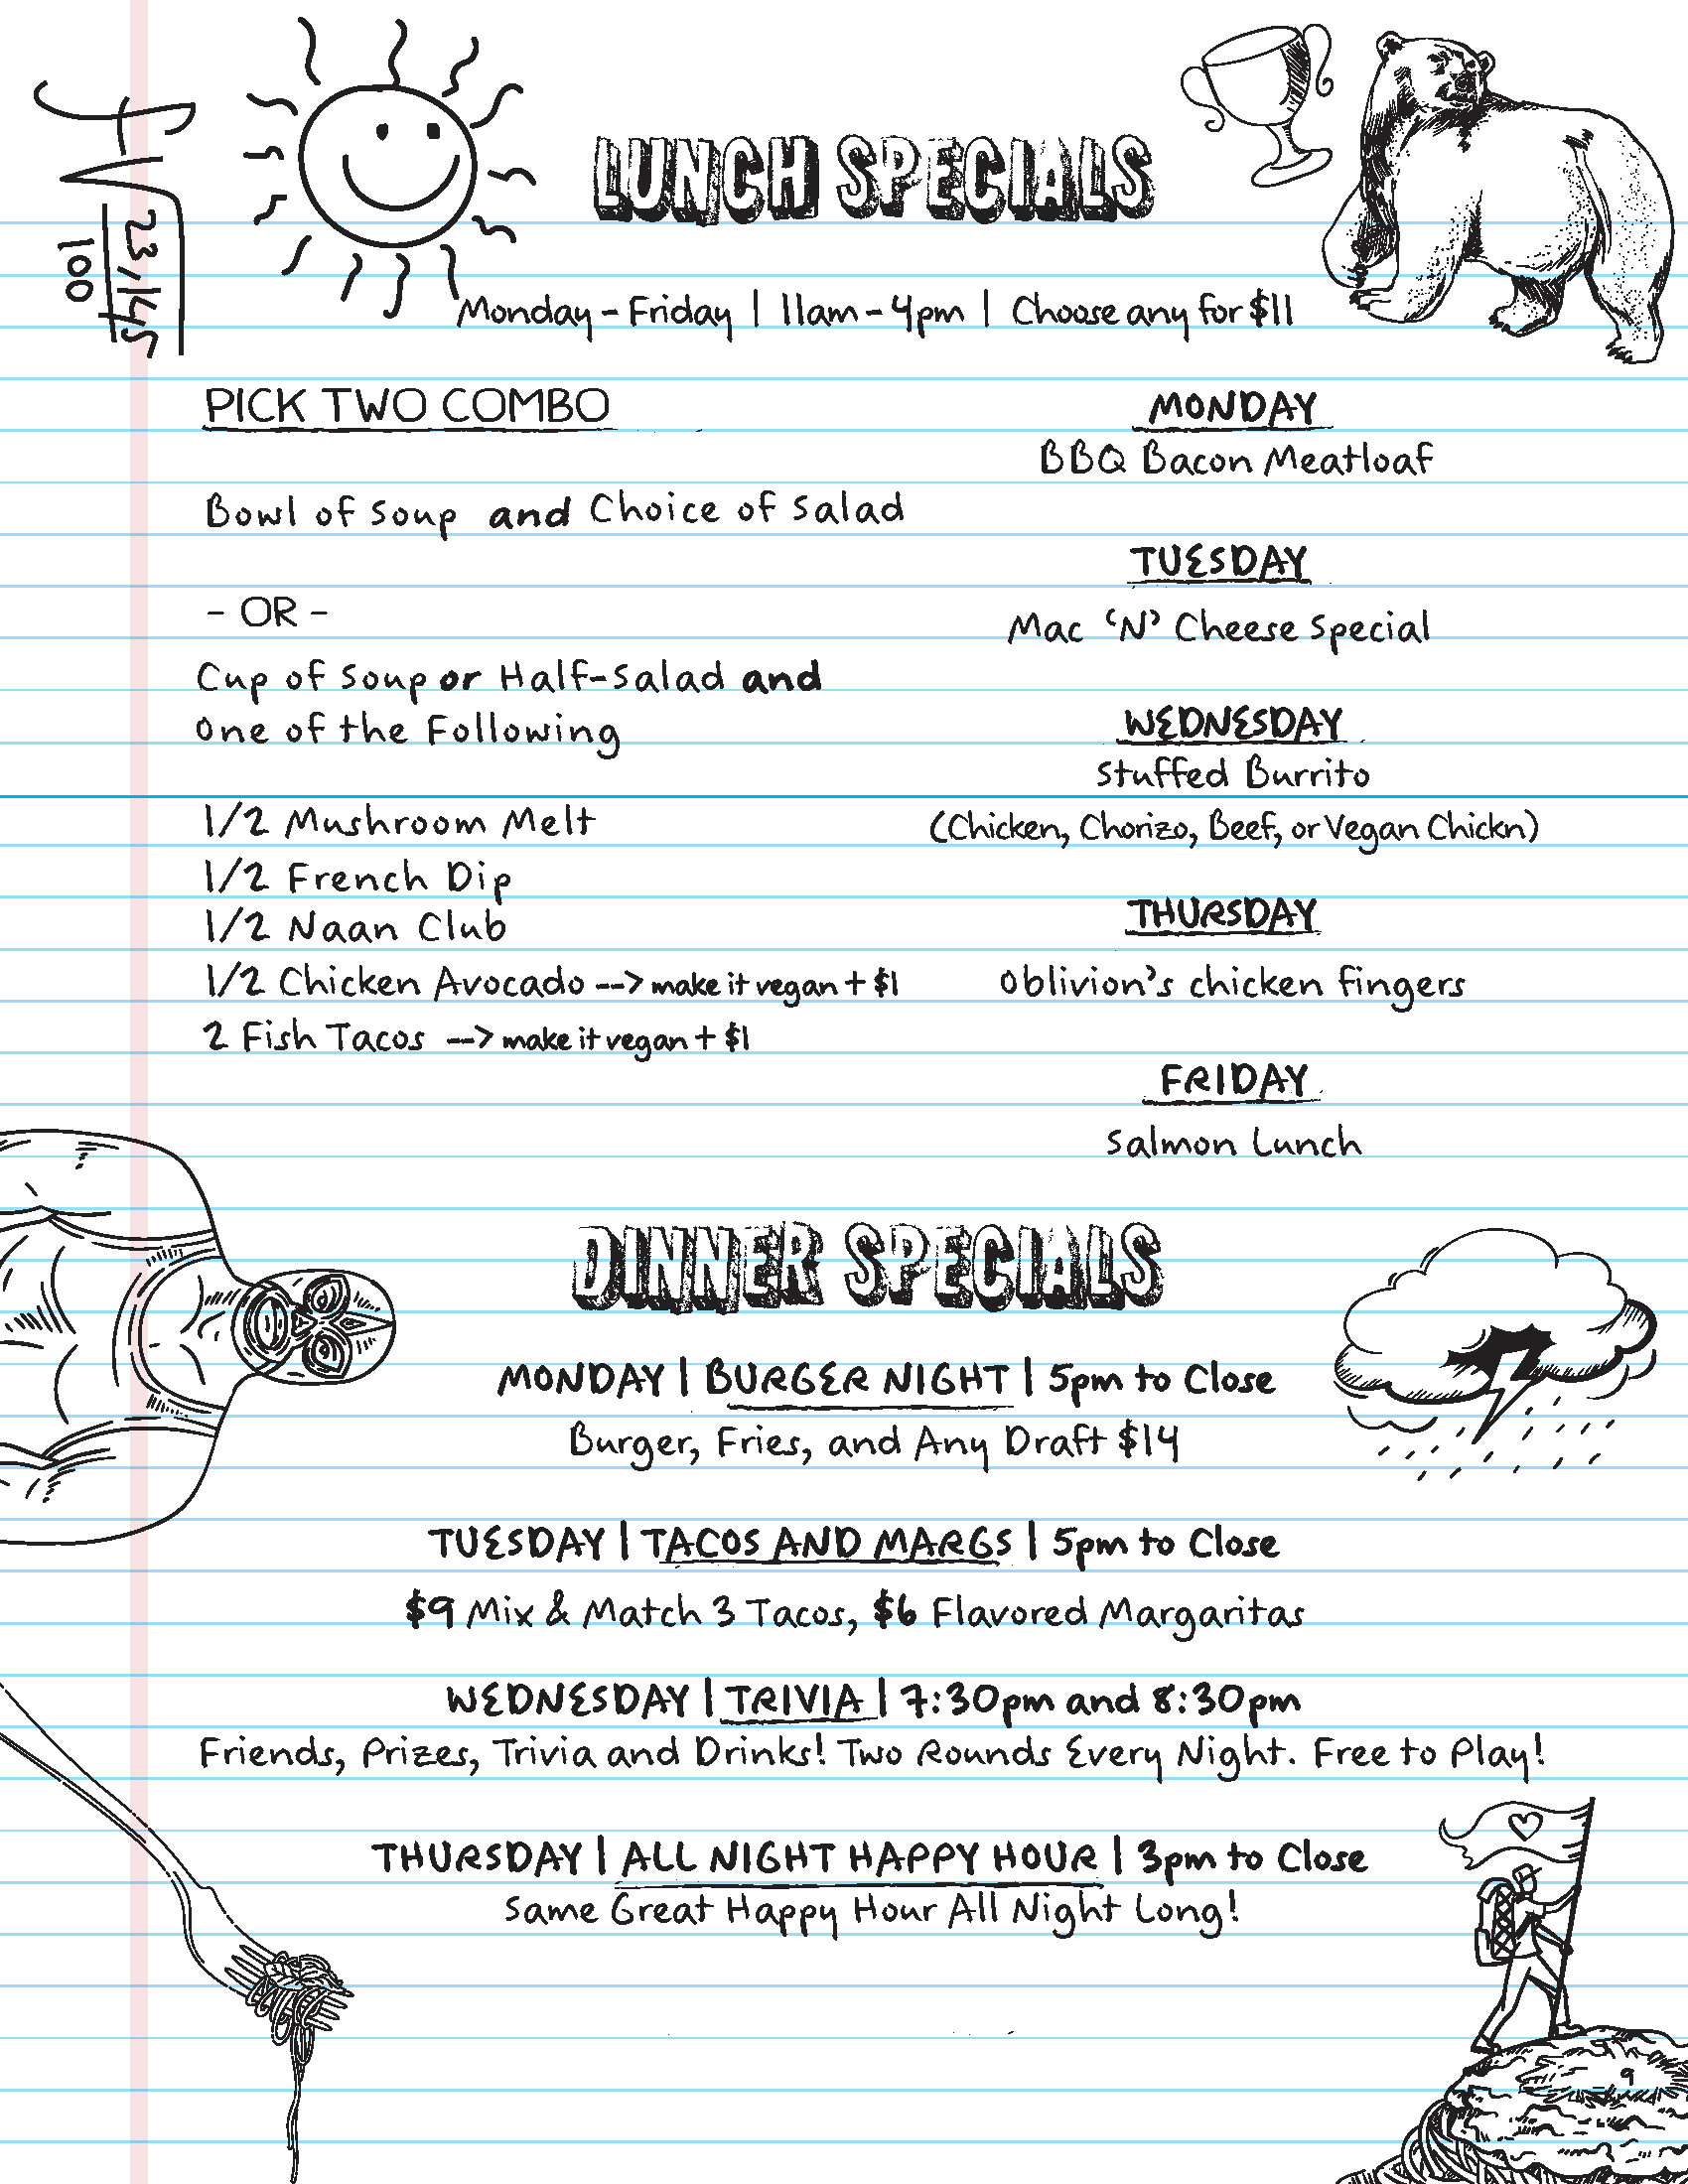 LUNCH SPECIALS
Monday - Friday | 11am - 4pm | Choose any for $11
PICK TWO COMBO
Bowl of Soup and Choice of Salad
- OR -
Cup of Soup or Half-Salad and
One of the Following
1/2 Mushroom Melt
1/2 French Dip
1/2 Naan Club
1/2 Chicken Avocado --> make it vegan + $1
2 Fish Tacos --> make it vegan + $1
MONDAY
BBQ Bacon Meatloaf
TUESDAY
Mac 'N' Cheese Special
WEDNESDAY
Stuffed Burrito
(Chicken, Chorizo, Beef, or Vegan Chickn)
THURSDAY
Oblivion's chicken fingers
FRIDAY
Salmon Lunch
DINNER SPECIALS
MONDAY | BURGER NIGHT | 5pm to Close
Burger, Fries, and Any Draft $14
TUESDAY | TACOS AND MARGS | 5pm to Close
$9 Mix & Match 3 Tacos, $6 Flavored Margaritas
WEDNESDAY | TRIVIA | 7:30pm and 8:30pm
Friends, Prizes, Trivia and Drinks! Two Rounds Every Night. Free to Play!
THURSDAY | ALL NIGHT HAPPY HOUR | 3pm to Close
Same Great Happy Hour All Night Long!
9